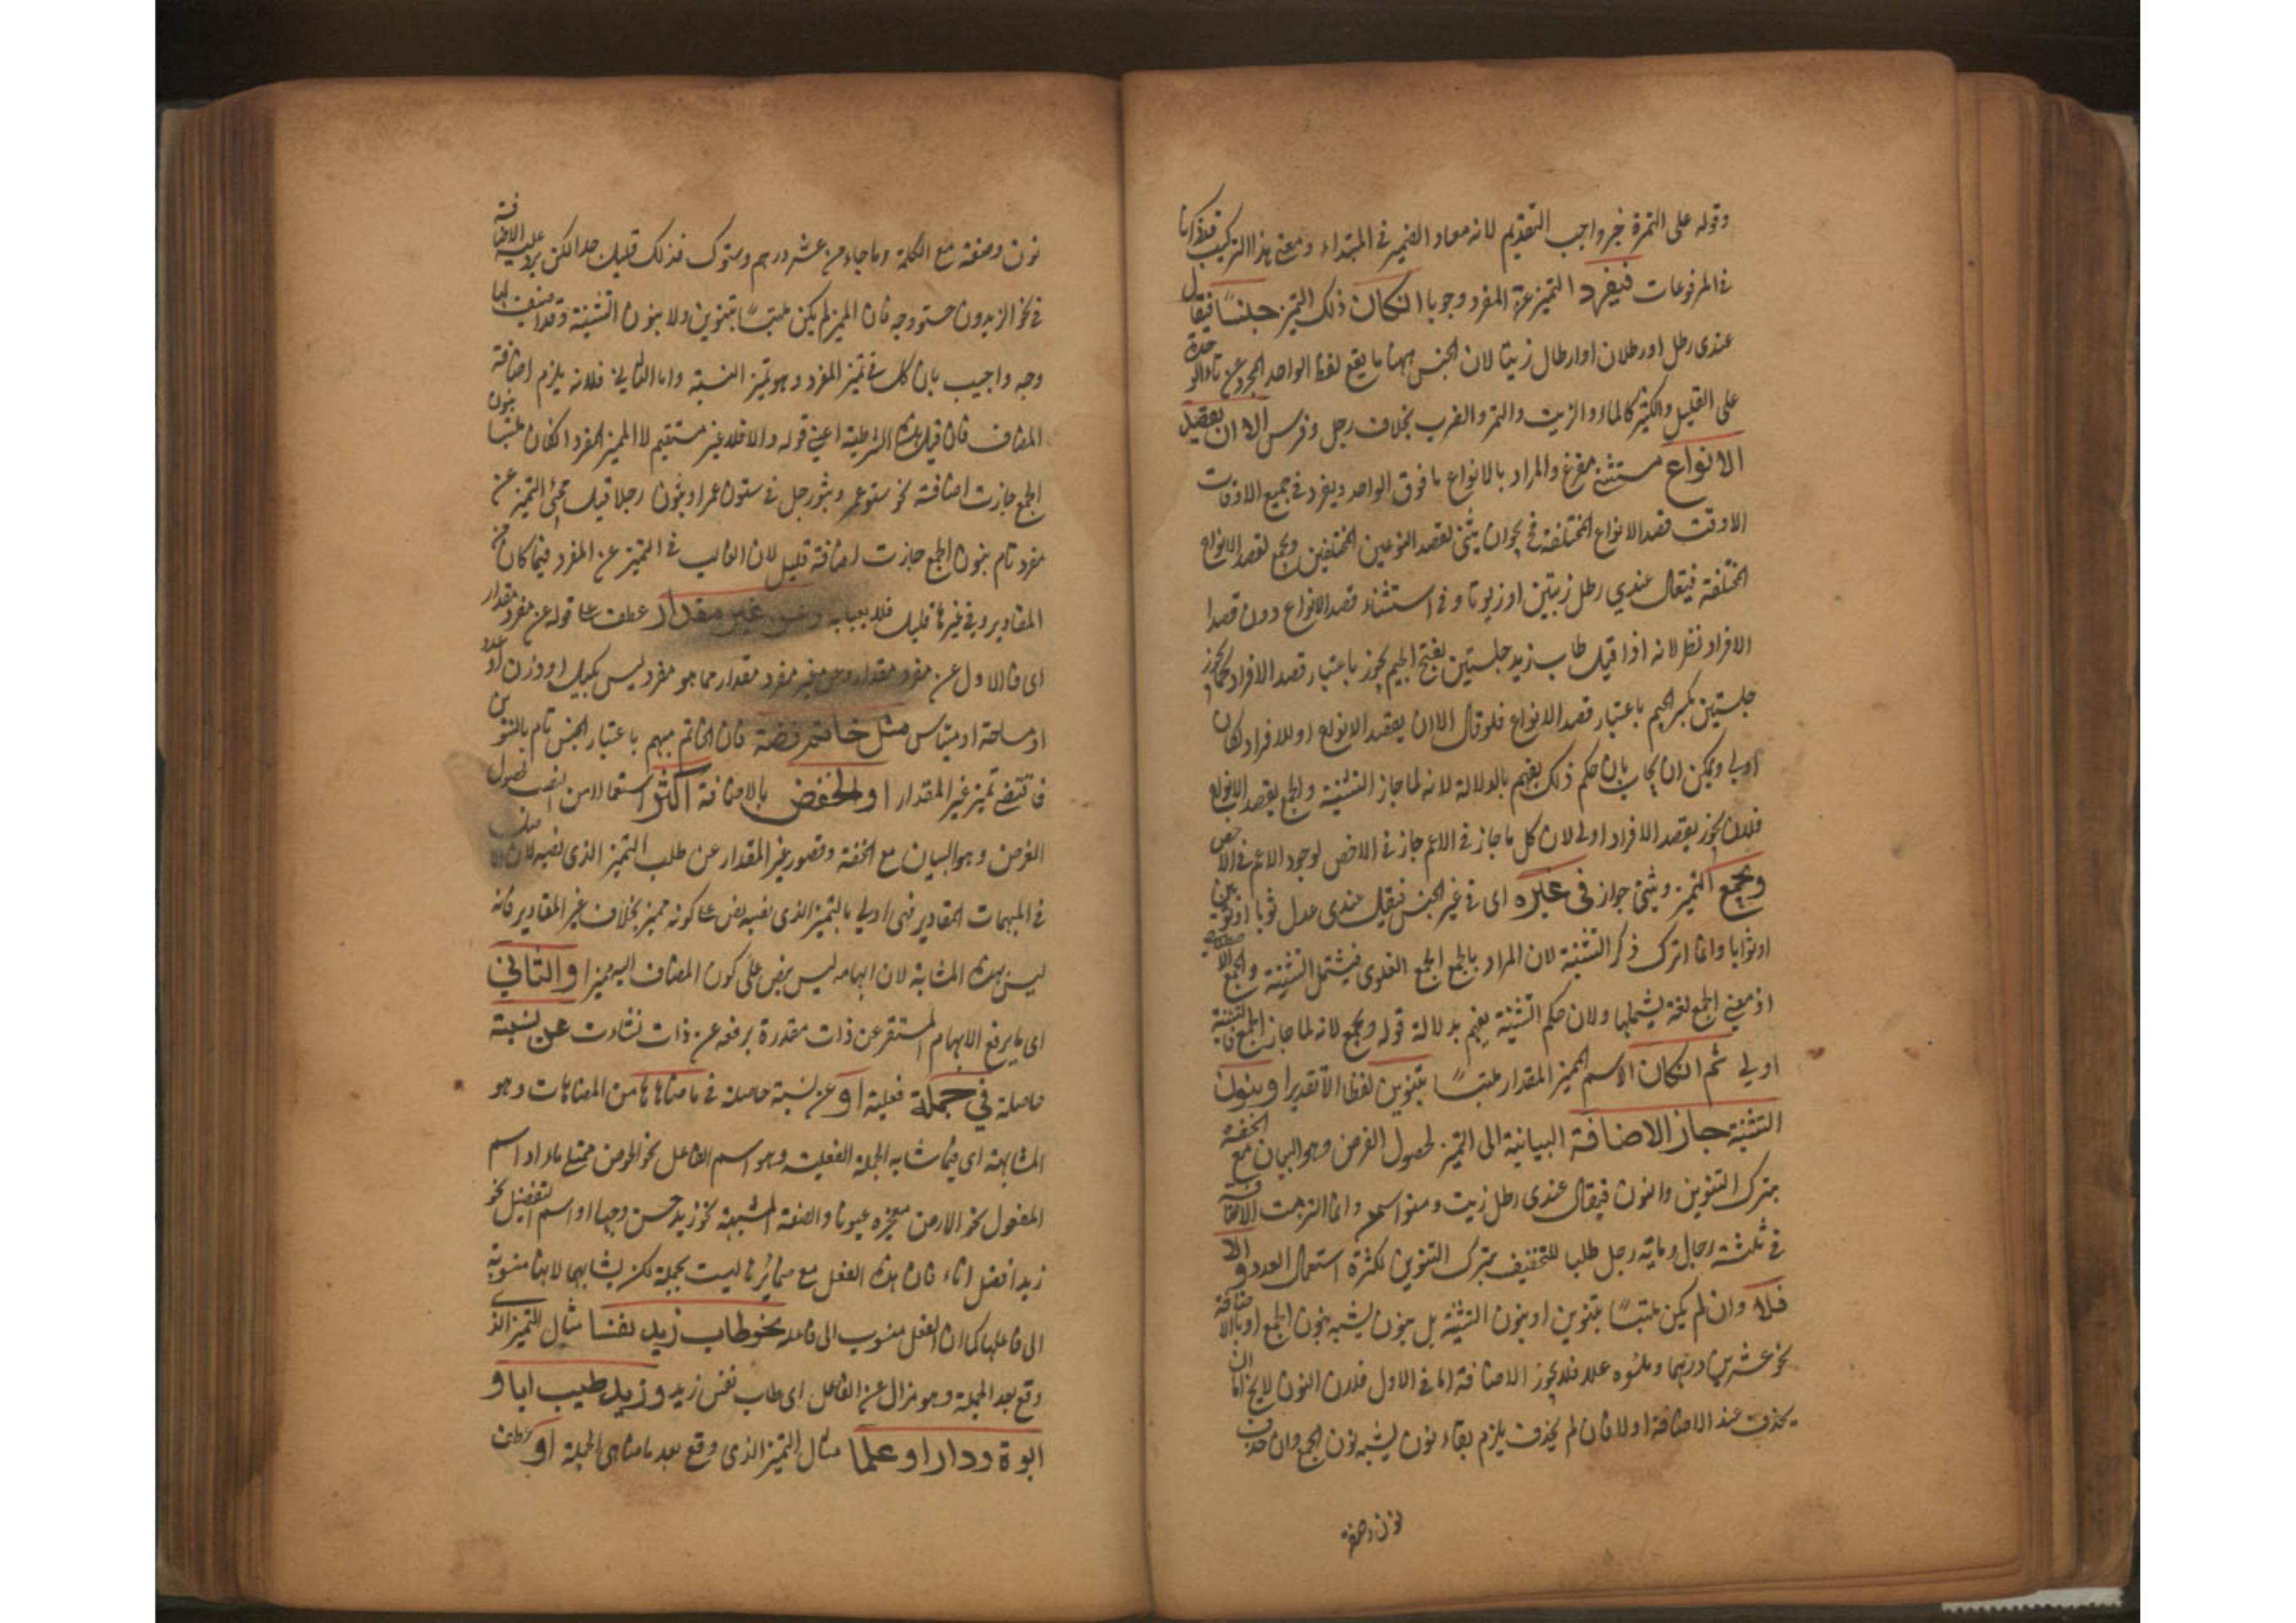 وقوله على التمرة خبر واجب التقديم لانه معاد الضمير في المبتداء ومعنى هذا التركيب قد ذكرنا
في المرفوعات فيفرد التميز عن المفرد وجوبا ان كان ذلك التميز جنسًا فيقال
عندى رطل او رطلان او ارطال زيتا لان الجنس ههنا ما يقع لفظ الواحد المجرد عن تاء الوحدة
على القليل والكثير كالماء والزيت والتمر والضرب بخلاف رجل وفرس الا ان يقصد
الانواع مستثنى مفرغ والمراد بالانواع ما فوق الواحد ويفرد في جميع الاوقات
الا وقت قصد الانواع المختلفة فح يجوز ان يثنى لقصد النوعين المختلفين ويجمع لقصد الانواع
المختلفة فيقال عندي رطل زيتين او زيوتا وفي استثناء قصد الانواع دون قصد
الافراد نظر لانه اذا قيل طاب زيد جلستين بفتح الجيم يجوز باعتبار قصد الافراد كما يجوز
جلستين بكسر الجيم باعتبار قصد الانواع فلو قال الا ان يقصد الانواع او الافراد لكان
اولى ويمكن ان يجاب بان حكم ذلك يفهم بالدلالة لانه لما جاز التثنية والجمع بقصد الانواع
فلان يجوز بقصد الافراد اولى لان كل ما جاز في الاعم جاز في الاخص لوجود الاعم في الاخص
ويجمع التميز ويثنى جواز في غيره اى في غير الجنس فيقال عندى عدل ثوبا او ثوبين
او ثوابا وانما ترك ذكر التثنية لان المراد بالجمع الجمع اللغوى فيشتمل التثنية والجمع
اذ معنى الجمع لغة يشملها ولان حكم التثنية يفهم بدلالة قوله ويجمع لانه لما جاز الجمع فالتثنية
اولى ثم ان كان الاسم المميز المقدار ملتبسًا بتنوين لفظا او تقديرا او بنون
التثنية جاز الاضافة البيانية الى التميز لحصول الغرض وهو البيان مع الخفة
بترك التنوين والنون فيقال عندى رطل زيت ومنوا سمن وانما التزمت الاضافة
في ثلثة رجال ومائة رجل طلبا للتخفيف بترك التنوين لكثرة استعمال العدد والا
فلا وان لم يكن ملتبسًا بتنوين او بنون التثنية بل بنون يشبه نون الجمع او بالاضافة
نحو عشرين درهما وملئوه عسلا فلا يجوز الاضافة اما في الاول فلان النون لا يخ اما ان
يحذف عند الاضافة او لا فان لم يحذف يلزم بقاء نون يشبه نون الجمع وان حذف
نون وضعفه
نون وضعفه مع الكلمة وما جاء من عشر درهم وستوك فذلك قليل جدا لكن يرد عليه الاضافة
في نحو الزيدون حسنو وجه فان المميز لم يكن ملتبسًا بتنوين ولا بنون التثنية وقد اضيفت الى
وجه واجيب بان كلامنا في تميز المفرد وهو تميز النسبة واما الثاني فلانه يلزم اضافة
المضاف فان قيل هذه الشرطية اعني قوله والا فلا غير مستقيم لان المميز المفرد ان كان ملتبسا بنون
الجمع جازت اضافته نحو ستو عمر وبثو رجل في ستون عمرا وبثون رجلا قيل مجئ التميز عن
مفرد تام بنون الجمع جازت اضافته قليل لان الغالب في التميز عن المفرد فيما كان من
المقادير وفي غيرها قليل فلا يعبا به وعن غير مقدار عطف على قوله عن مفرد مقدار
اى فالاول عن مفرد مقدار وعن مفرد غير مقدار مما هو مفرد ليس بكيل او وزن او عدد
او مساحة او مقياس مثل خاتم فضة فان الخاتم مبهم باعتبار الجنس تام بالتنوين
فاقتضى تميز غير المقدار او الخفض بالاضافة اكثر استعمالا من النصب لحصول
الغرض وهو البيان مع الخفة وقصور غير المقدار عن طلب التميز الذى نصبه لان الاصل
في المبهمات المقادير فهى اولى بالتميز الذى نصبه نص على كونه مميزا بخلاف غير المقادير فانه
ليس بهذه المثابة لان ابهامه ليس بنص على كون المضاف اليه مميزا والثاني
اى ما يرفع الابهام المستقر عن ذات مقدرة يرفعه عن ذات نشاءت عن نسبة
حاصلة في جملة فعلية او عن نسبة حاصلة في ما ضاهاها من المضاهات وهو
المشابهة اى فيما شابه الجملة الفعلية وهو اسم الفاعل نحو الحوض ممتلى ماء او اسم
المفعول نحو الارض مفجرة عيونا والصفة المشبهة نحو زيد حسن وجها او اسم التفضيل نحو
زيد افضل اباء فان هذه الفعل مع ضمائرها ليست بجملة لكن يشابهها لانها منسوبة
الى فاعلها كما ان الفعل منسوب الى فاعله نحو طاب زيد نفسا مثال التميز الذى
وقع بعد الجملة وهو مزال عن الفاعل اى طاب نفس زيد وزيد طيب ابا و
ابوة ودارا وعلما مثال التميز الذى وقع بعد ما ضاهى الجملة او عطف